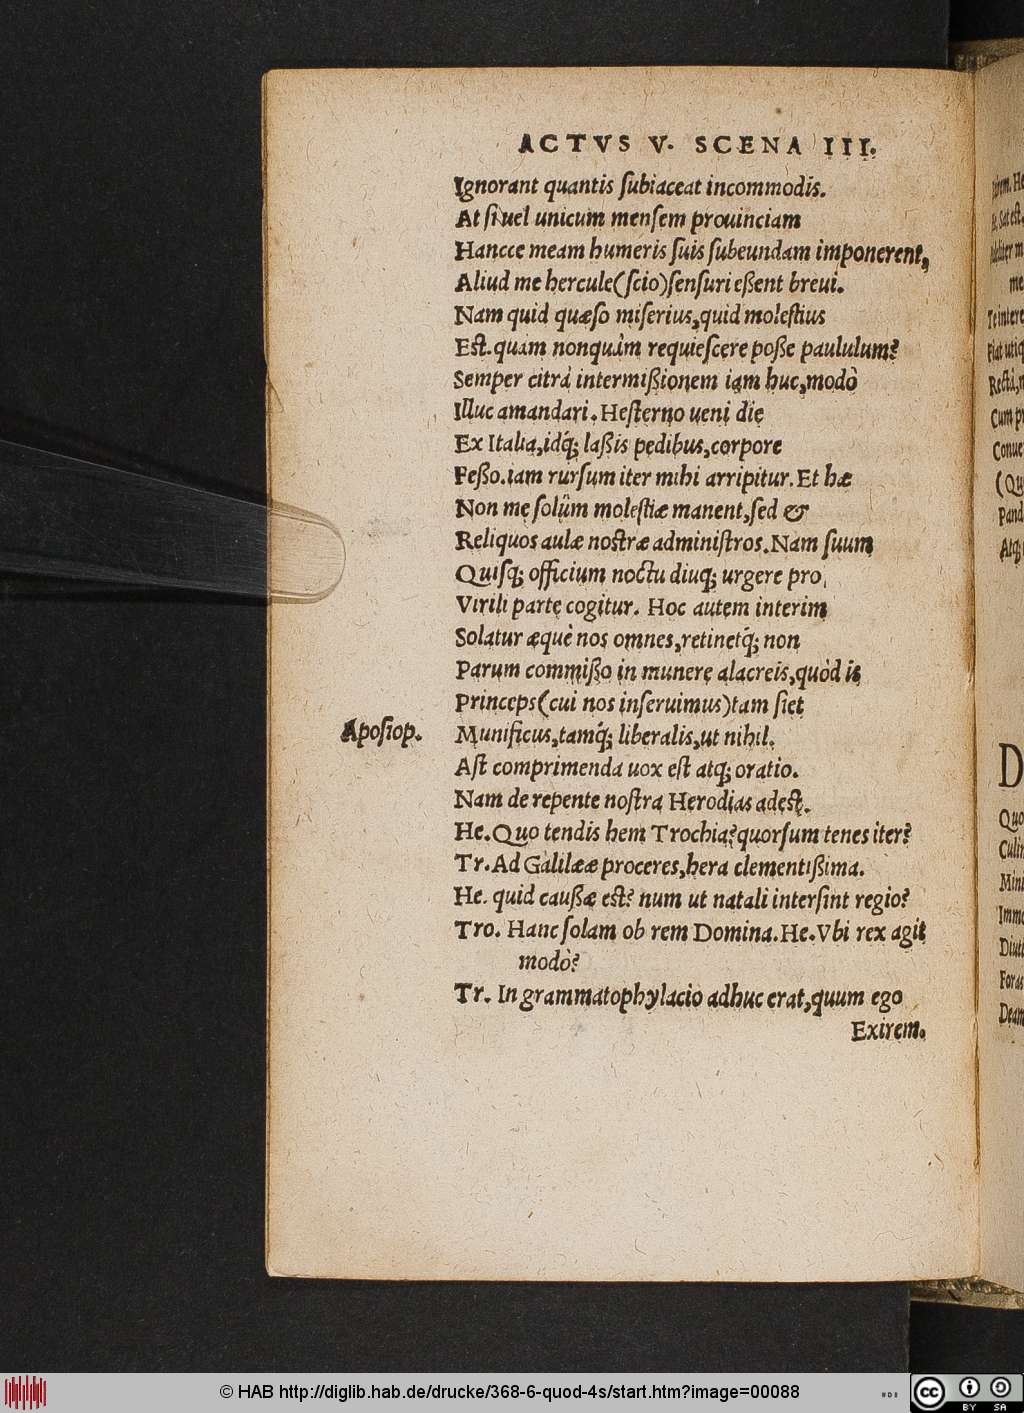 ACTVS V. SCENA III.
Ignorant quantis ſubiaceat incommodis.
At ſi uel unicum menſem prouinciam
Hancce meam humeris ſuis ſubeundam imponerent,
Aliud me hercule(ſcio)ſenſuri eßent breui.
Nam quid quæſo miſerius,quid moleſtius
Eſt.quàm nonquàm requieſcere poße paululum?
Semper citrà intermißionem iam huc,modò
Illuc amandari.Heſterno ueni die
Ex Italia,idq́; laßis pedibus,corpore
Feßo.iam rurſum iter mihi arripitur.Et hæ
Non me ſolùm moleſtiæ manent,ſed &
Reliquos aulæ noſtræ adminiſtros.Nam ſuum
Quiſq; officium noctu diuq; urgere pro
Virili parte cogitur. Hoc autem interim
Solatur æquè nos omnes,retinetq́; non
Parum commißo in munere alacreis,quòd is
Princeps(cui nos inſeruimus)tam ſiet
Apoſiop.
Munificus,tamq́; liberalis,ut nihil.
Aſt comprimenda uox eſt atq; oratio.
Nam de repente noſtra Herodias adeſt.
He.Quo tendis hem Trochia?quorſum tenes iter?
Tr.Ad Galilææ proceres,hera clementißima.
He. quid caußæ eſt? num ut natali interſint regio?
Tro. Hanc ſolam ob rem Domina.He.Vbi rex agit
modò?
Tr. In grammatophylacio adhuc erat,quum ego
Exirem.
© HAB http://diglib.hab.de/drucke/368-6-quod-4s/start.htm?image=00088
cc
BY SA